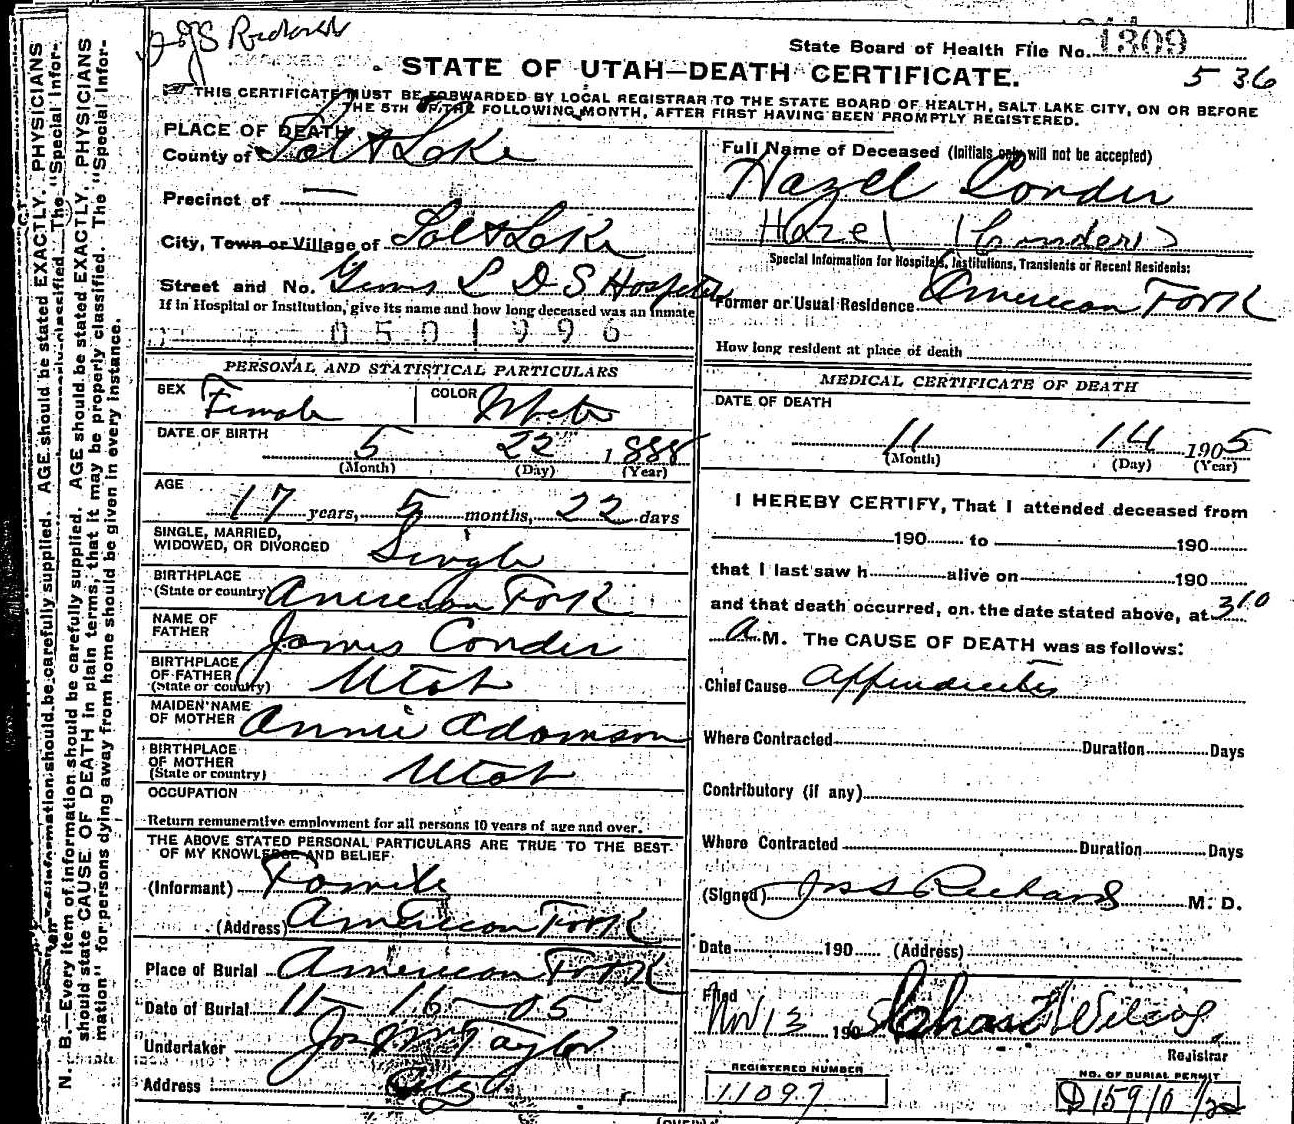 State Board of Health File No. 1309
536
STATE OF UTAH—DEATH CERTIFICATE.
THIS CERTIFICATE MUST BE FORWARDED BY LOCAL REGISTRAR TO THE STATE BOARD OF HEALTH, SALT LAKE CITY, ON OR BEFORE
THE 5TH OF THE FOLLOWING MONTH, AFTER FIRST HAVING BEEN PROMPTLY REGISTERED.
PLACE OF DEATH
County of Salt Lake
Precinct of —
City, Town or Village of Salt Lake
Street and No. L D S Hospital
If in Hospital or Institution, give its name and how long deceased was an inmate
0501996
PERSONAL AND STATISTICAL PARTICULARS
SEX Female COLOR White
DATE OF BIRTH
5 22 1888
(Month) (Day) (Year)
AGE
17 years, 5 months, 22 days
SINGLE, MARRIED,
WIDOWED, OR DIVORCED Single
BIRTHPLACE
(State or country) American Fork
NAME OF
FATHER James Conder
BIRTHPLACE
OF FATHER
(State or country) Utah
MAIDEN NAME
OF MOTHER Annie Adamson
BIRTHPLACE
OF MOTHER
(State or country) Utah
OCCUPATION
Return remunerative employment for all persons 10 years of age and over.
THE ABOVE STATED PERSONAL PARTICULARS ARE TRUE TO THE BEST
OF MY KNOWLEDGE AND BELIEF.
(Informant) Family
(Address) American Fork
Place of Burial American Fork
Date of Burial 11-16-05
Undertaker Jos Wm Taylor
Address City
Full Name of Deceased (Initials only will not be accepted)
Hazel Conder
Hazel (Conder)
Special Information for Hospitals, Institutions, Transients or Recent Residents:
Former or Usual Residence American Fork
How long resident at place of death
MEDICAL CERTIFICATE OF DEATH
DATE OF DEATH
11 14 1905
(Month) (Day) (Year)
I HEREBY CERTIFY, That I attended deceased from
190 to 190
that I last saw h alive on 190
and that death occurred, on the date stated above, at 3 10
A.M. The CAUSE OF DEATH was as follows:
Chief Cause Appendicitis
Where Contracted Duration Days
Contributory (if any)
Where Contracted Duration Days
(Signed) Jos S Richards M. D.
Date 190 (Address)
Filed
Nov 13 1905 Chas H Wilcox
Registrar
REGISTERED NUMBER
11097
NO. OF BURIAL PERMIT
D 15910
(OVER)
N. B.—Every item of information should be carefully supplied. AGE should be stated EXACTLY. PHYSICIANS
should state CAUSE OF DEATH in plain terms, that it may be properly classified. The "Special Infor-
mation" for persons dying away from home should be given in every instance.